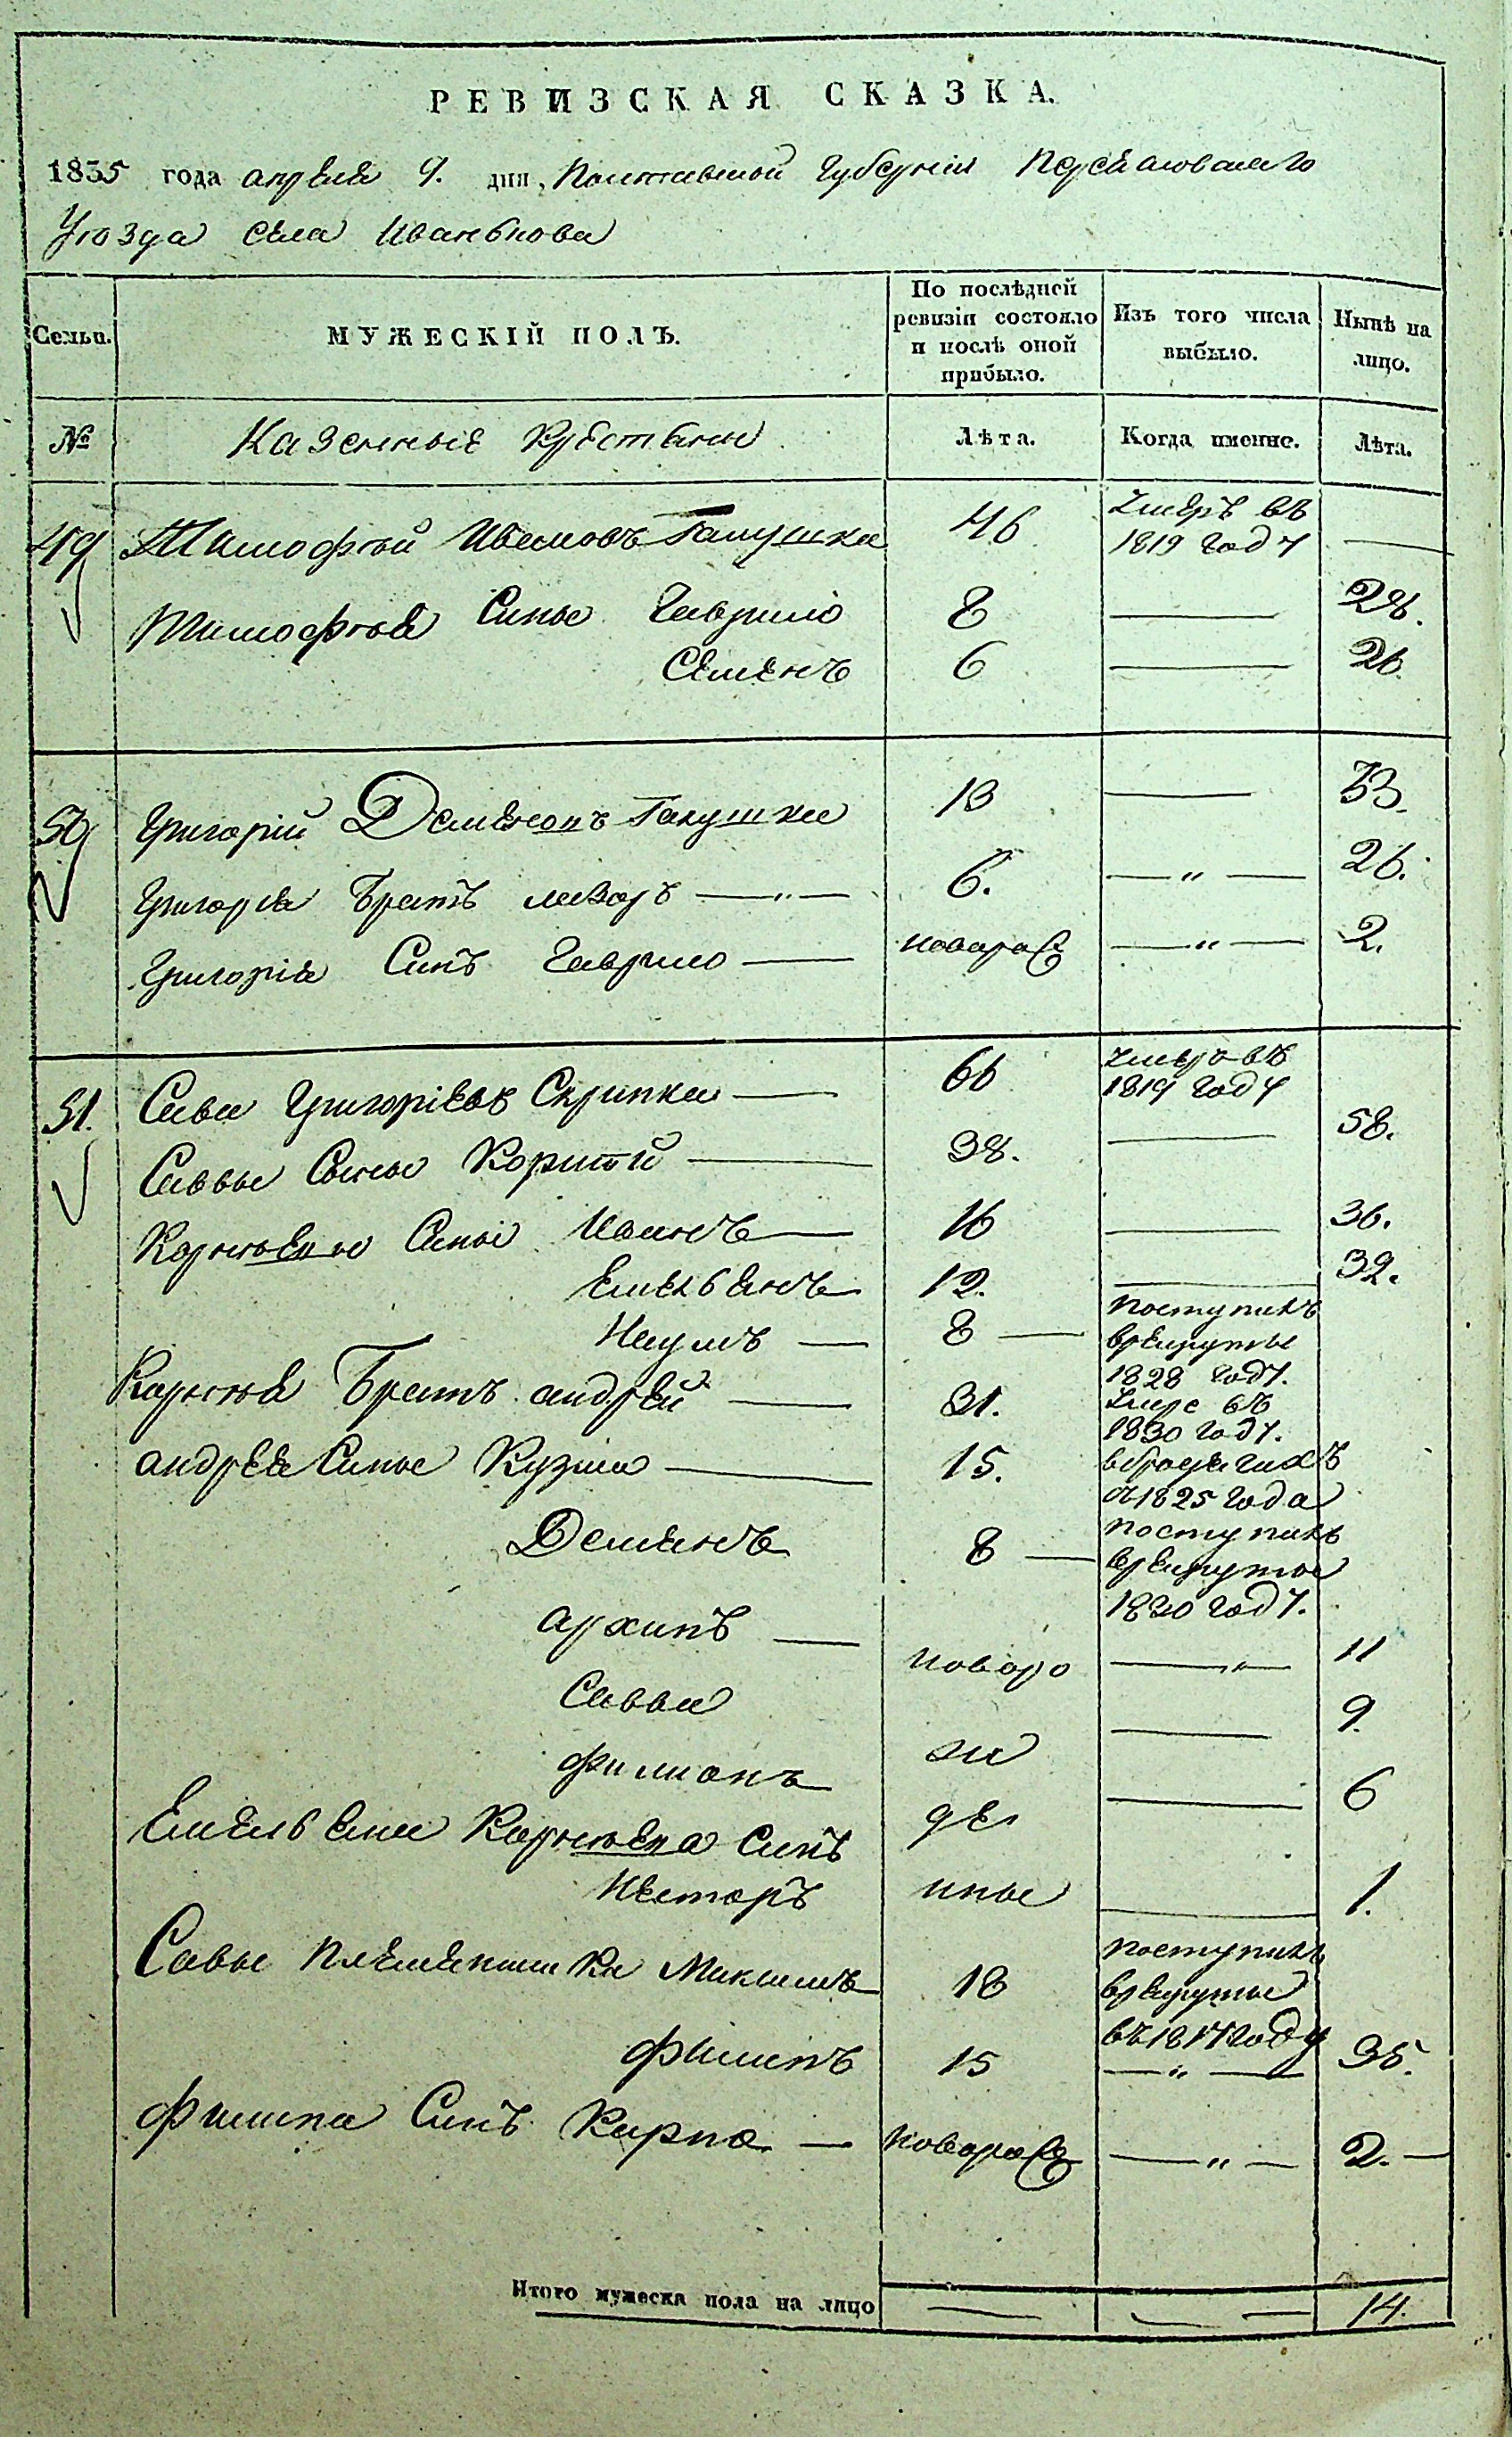 РЕВИЗСКАЯ СКАЗКА.
1835 года апреля 9. дня, Полтавской Губернии Переяловскаго
Уюзда села Иванькова
Семьи. МУЖЕСКІЙ ПОЛЪ. По послѣдней ревизіи состояло и послѣ оной прибыло. Изъ того числа выбыло. Нынѣ на лицо.
№ Казенные Крестьяне Лѣта. Когда именно. Лѣта.
49 Тимофѣй Ивановъ Галушка 46 Умеръ въ 1819 году —
Тимофѣя Сины Гаврило 8 — 28.
Семенъ 6 — 26.
50 Григорій Демяновъ Галушка 13 — 33.
Григорія Братъ Лазоръ —„— 6. —„— 26.
Григорія Синъ Гаврило — новорож —„— 2.
51. Сава Григоріевъ Скрипка — 66 Умеръ въ 1819 году
Саввы Сыны Корнѣй — 38. — 58.
Корнѣевы Сины Иванъ — 16 — 36.
Емельянъ 12. — 32.
Наумъ — 8 — поступилъ врекруты 1828 году.
Корнѣя Братъ андрей — 31. Умре въ 1830 году.
андрея Сины Кузма — 15. вбродягахъ съ 1825 года
Демянъ 8 — поступилъ врекруты 1830 году.
архипъ — новоро —„— 11
Савва жд — 9.
Филионъ де — 6
Емельяна Корнѣева Синъ
Несторъ нные — 1.
Савы племенника Максимъ 18 поступилъ врекруты въ 1817 году
Филипъ 15 —„— 35.
Филипа Синъ Карпо — новорож —„— 2. —
Итого мужеска пола на лицо — — — 14.